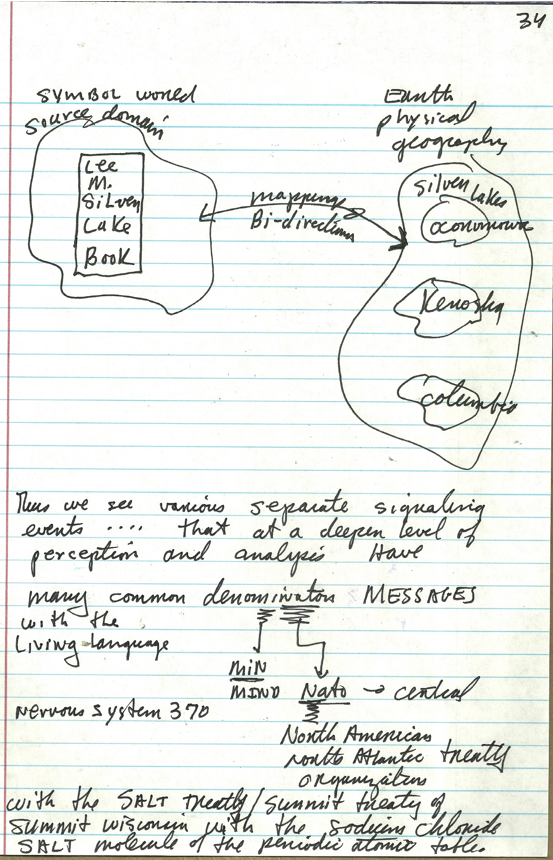 34
SYMBOL world
source domain
Lee
M.
SiLver
Lake
Book
mapping
Bi-direction
Earth
physical
geography
Silver Lakes
oconomowoc
Kenosha
Columbia
Thus we see various separate signaling
events .... that at a deeper level of
perception and analysis Have
many common denominators MESSAGES
with the
Living Language
MiN
MIND
Nato → central
nervous system 370
North American
North Atlantic treatly
organization
with the SALT treatly/summit treaty of
summit wisconsin with the sodium chloride
SALT molecule of the periodic atomic table.